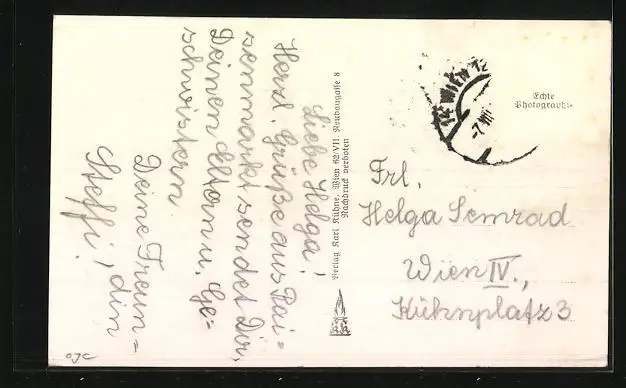 Liebe Helga!
Herzl. Grüße aus Pai=
senmarkt sendet Dir,
Deinen Eltern u. Ge=
schwistern
Deine Freun=
din
Steffi!
Verlag Karl Kühne, Wien 62/VII Neubaugasse 8
Nachdruck verboten
WIEN
Echte
Photographie
Frl.
Helga Semrad
Wien IV.,
Kühnplatz 3